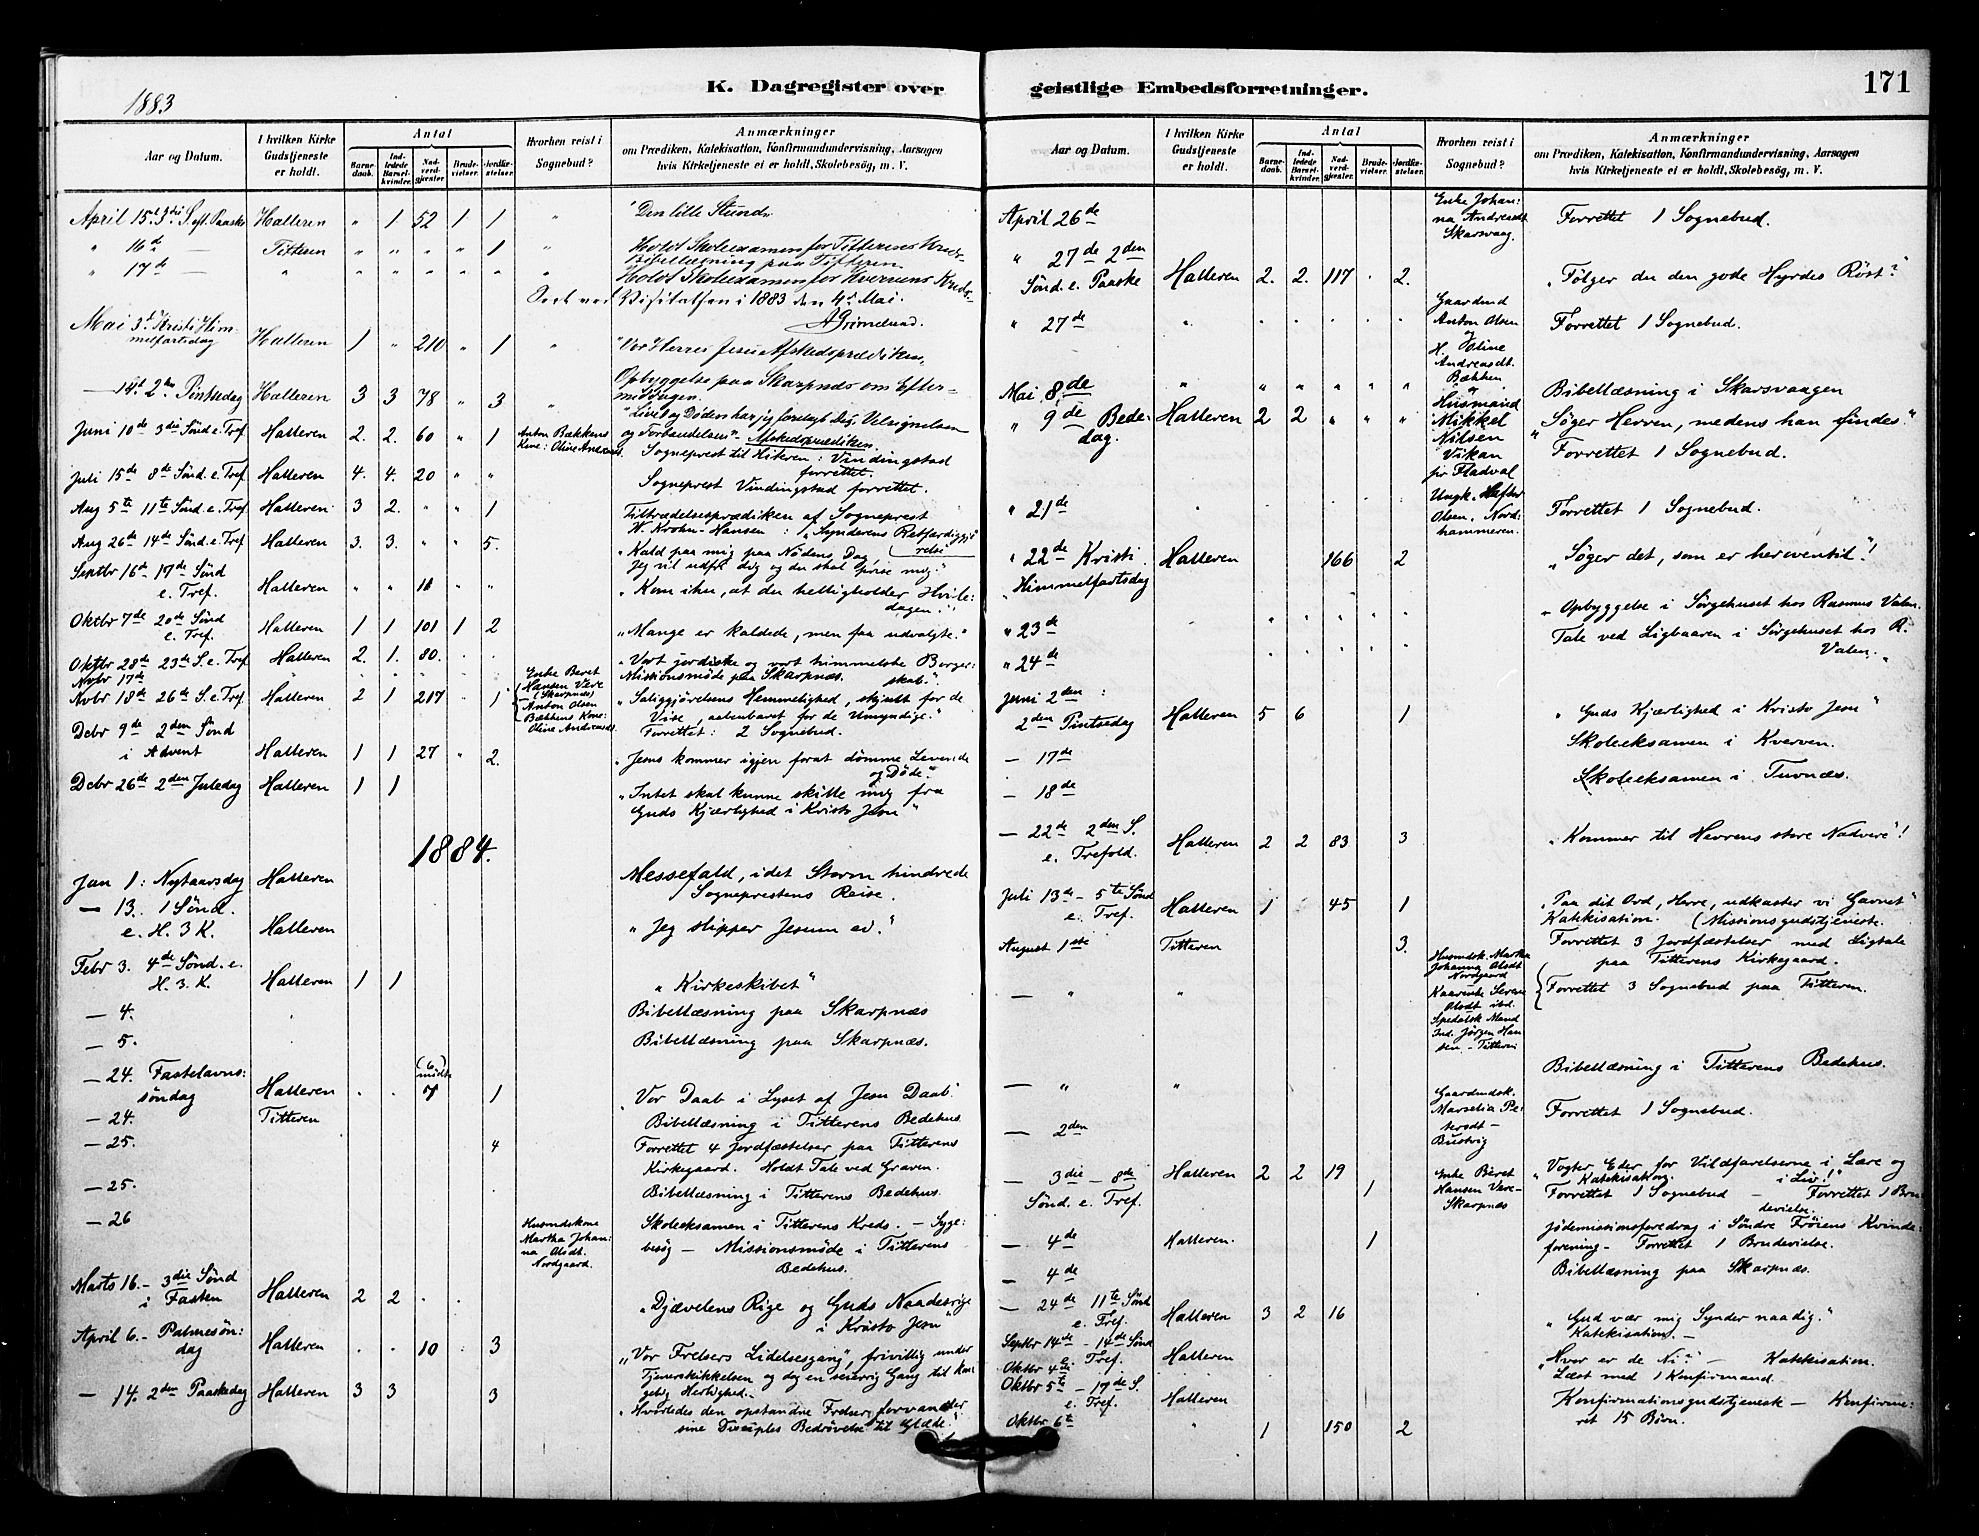 K. Dagregister over
1883
Aar og Datum.
I hvilken Kirke Gudstjeneste er holdt.
Antal
Barnedaab.
Indledede Barselkvinder.
Nadverdgjæster
Brudevielser.
Jordfæstelser.
Hvorhen reist i Sognebud?
Anmærkninger
om Prædiken, Katekisation, Konfirmandundervisning, Aarsagen
hvis Kirketjeneste ei er holdt, Skolebesøg, m. V.
April 15. 3die S. eft. Paaske Halleren " 1 52 1 1 " "Den lille Stund"
" 16de — Titteren " " " " 1 " Holdt Skoleexamen for Titterens Kreds
Bibellæsning paa Titteren.
" 17de — " " " " " " " Holdt Skoleexamen for Kvervens Kreds
Seet ved Visitatsen i 1883 den 4de Mai.
AGrimelund.
Mai 3die Kristi Himmelfartsdag Halleren 1 " 210 " 1 " "Vor Herres Jesu Afskedsprædiken"
— 14de 2den Pintsedag Halleren 3 3 78 " 3 " Opbyggelse paa Skarpnæs om Eftermiddagen.
Juni 10de 3die Sønd e. Tref. Halleren 2. 2. 60 " 1 Anton Bækkens Kone: Oline Andreasdt. "Livet og Døden har jeg forelagt Dig, Velsignelsen
og Forbandelsen" - Afskedsprædiken.
Juli 15de 8de Sønd. e. Tref. Halleren 4. 4. 20 " " Sogneprest til Hiteren: Vindingstad
forrettet.
Aug 5te 11te Sønd. e. Tref. Halleren 3 2. " " 1 Sogneprest Vindingstad forrettet.
Aug 26de 14de Sønd. e. Tref Halleren 3. 3. " " 5. Tiltrædelsesprædiken af Sogneprest
W. Krohn-Hansen: "Synderens Retfærdiggjørelse
"Kald paa mig paa Nødens Dag,
Jeg vil udfri dig og du skal prise mig."
Septbr 16de 17de Sønd e. Tref. Halleren " " 11 " " "Kom ihu, at du helligholder Hviledagen."
Oktbr 7de 20de Sønd e. Tref. Halleren 1 1 101 1 2 "Mange er kaldede, men faa udvalgte."
Oktbr 28de 23de S. e. Tref. Halleren 2. 1. 80. . . "Vort jordiske og vort himmelske Borgerskab."
Novbr 17de Missionsmøde paa Skarpnæs.
Novbr 18de 26de S. e. Tref Halleren 2 1 217 . 1 Enke Beret Hansen Være (Skarpnæs) Anton Olsen Bækkens Kone: Oline Andreasdt. "Saliggjørelsens Hemmelighed, skjult for de
Vise, aabenbaret for de Umyndige."
Forrettet: 2 Sognebud.
Debr 9de 2den Sønd i Advent Halleren 1 1 27 " 2. "Jesus kommer igjen forat dømme Levende
og Døde."
Debr 26de 2den Juledag Halleren 1 1 "Intet skal kunne skille mig fra
Guds Kjærlighed i Kristo Jesu"
1884.
Jan 1: Nytaarsdag Halleren Messefald, idet Storm hindrede
Sogneprestens Reise.
— 13. 1 Sønd. e. H. 3 K. Halleren "Jeg slipper Jesum ei."
Febr 3. 4de Sønd. e. H. 3. K. Halleren 1 1 "Kirkeskibet"
— 4. Bibellæsning paa Skarpnæs
— 5. Bibellæsning paa Skarpnæs.
— 24. Fastelavnssøndag Halleren . . (6 mødte) 7 1 "Vor Daab i Lyset af Jesu Daab."
— 24. Titteren Bibellæsning i Titterens Bedehus.
— 25. 4 Forrettet 4 Jordfæstelser paa Titterens
Kirkegaard. Holdt Tale ved Graven.
— 25. Bibellæsning i Titterens Bedehus.
— 26 Husmdskone Martha Johanna Olsdt. Nordgaard. Skoleeksamen i Titterens Kreds. — Sygebesøg — Missionsmøde i Titterens
Bedehus.
Marts 16. – 3die Sønd i Fasten Halleren 2 2 . . "Djævelens Rige og Guds Naadesrige
i Kristo Jesu"
April 6. – Palmesøndag Halleren . . 10 . 3 "Vor Frelsers Lidelsesgang", frivillig under
Tjenerskikkelsen og dog en seierrig Gang til Kongelig Herlighed.
— 14. 2den Paaskedag Halleren 3 3 3 "Hvorledes den opstandne Frelser forvandler
sine Disciples Bedrøvelse til Glæde."
geistlige Embedsforretninger.
171
Aar og Datum.
I hvilken Kirke Gudstjeneste er holdt.
Antal
Barnedaab.
Indledede Barselkvinder.
Nadverdgjæster
Brudevielser.
Jordfæstelser.
Hvorhen reist i Sognebud?
Anmærkninger
om Prædiken, Katekisation, Konfirmandundervisning, Aarsagen
hvis Kirketjeneste ei er holdt, Skolebesøg, m. V.
April 26de Enke Johanna Andreasdt. Skarsvaag. Forrettet 1 Sognebud.
" 27de 2den Sønd. e. Paaske Halleren 2. 2. 117 . 2. "Følger du den gode Hyrdes Røst?"
" 27de " . . . . . Gaardmd Anton Olsen og H. Oline Andreasdt. Bækken Forrettet 1 Sognebud.
Mai 8de " " " " " " Bibellæsning i Skarsvaagen
" 9de Bededag. Halleren 2 2 " " " Husmand Mikkel Nilsen Vikan fir Fladval "Søger Herren, medens han findes."
Forrettet 1 Sognebud.
" 21de Ungk. Hefter Olsen, Nordhammeren. Forrettet 1 Sognebud.
" 22de Kristi Himmelfartsdag Halleren 166 2 "Søger det, som er heroventil"!
" 23de " Opbyggelse i Sørgehuset hos Rasmus Valen.
" 24de Tale ved Ligbaaren i Sørgehuset hos R. Valen.
Juni 2den: 2den Pintsedag Halleren 5 6 1 "Guds Kjærlighed i Kristo Jesu"
— 17de Skoleeksamen i Kverven.
— 18de Skoleeksamen i Tuvnæs.
— 22de 2den S. e. Trefold. Halleren 2 2 83 3 "Kommer til Herrens store Nadvere"!
Juli 13de – 5te Sønd e. Tref. Halleren 1 . 45 1 "Paa dit Ord, Herre, udkaster vi Garnet"
Katekisation. (Missionsgudstjeneste.
August 1ste Titteren 3. Forrettet 3 Jordfæstelser med Ligtale
paa Titterens Kirkegaard.
— " " Husmdsk. Martha Johanna Olsdt Nordgaard Kaarenke Serene Olsdt ibd. Spedalsk Mand Ind. Jørgen Hansen – Titteren Forrettet 3 Sognebud paa Titteren.
— " " Bibellæsning i Titterens Bedehus.
— 2den Gaardmdsk. Marselia Petersdt – Bustvig Forrettet 1 Sognebud.
— 3die – 8de Sønd. e. Tref. Halleren 2 2 19 1 Enke Beret Hansen Være – Skarpnæs "Vogter Eder for Vildfarelserne i Lære og
i Liv!" Katekisation.
Forrettet 1 Sognebud — Forrettet 1 Brudevielse.
— 4de Halleren. 1 Jødemissionsforedrag i Søndre Frøiens Kvindeforening – Forrettet 1 Brudevielse.
— 4de Bibellæsning paa Skarpnæs.
— 24de 11te Sønd e. Tref. Halleren 3 2 16 "Gud vær mig Synder naadig."
Katekisation. –
Septbr 14de – 14de Sønd e. Tref. Halleren "Hvor er de Ni?" — Katekisation.
Oktbr 4de Læst med 1 Konfirmand.
Oktbr 5te – 17de S. e. Tref. Halleren Konfirmationsgudstjeneste — Konfirmeret 15 Børn.
Oktbr 6te " 1 150 2